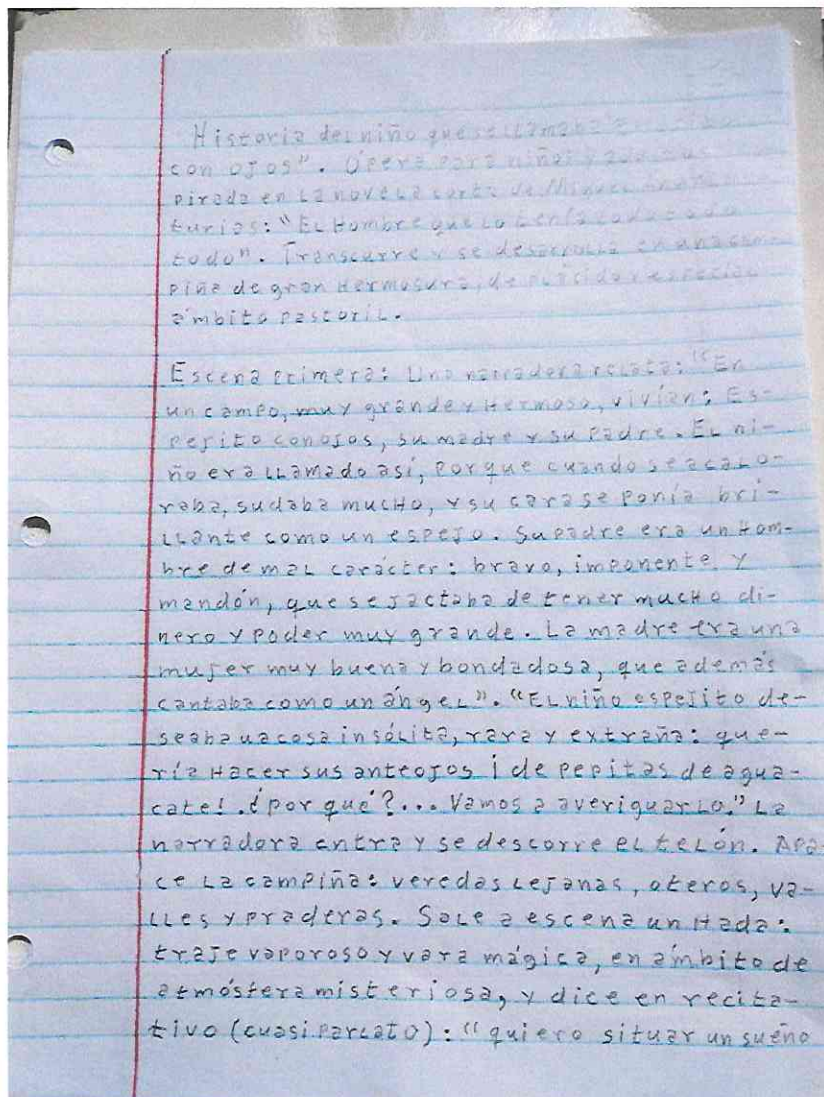 Historia del niño que se llamaba
con ojos". Ópera para niños y
pirada en la novela corta de Miguel
turias: "El Hombre que lo tenía todo todo
todo". Transcurre y se desarrolla en una cam-
piña de gran Hermosura, de plácido y especial
ámbito pastoril.
Escena primera: Una narradora relata: "En
un campo, muy grande y Hermoso, vivían: Es-
pejito con ojos, su madre y su padre. El ni-
ño era llamado así, porque cuando se acalo-
raba, sudaba mucHo, y su cara se ponía bri-
llante como un espejo. Su padre era un Hom-
bre de mal carácter: bravo, imponente y
mandón, que se jactaba de tener mucHo di-
nero y poder muy grande. La madre era una
mujer muy buena y bondadosa, que además
cantaba como un ángel". "El niño espejito de-
seaba ua cosa insólita, rara y extraña: que-
ría Hacer sus anteojos ¡de pepitas de agua-
cate!. ¿por qué?... Vamos a averiguarlo." La
narradora entra y se descorre el telón. Apa-
ce la campiña: veredas lejanas, oteros, va-
lles y praderas. Sale a escena un Hada:
traje vaporoso y vara mágica, en ámbito de
atmósfera misteriosa, y dice en recita-
tivo (cuasi parlato): "quiero situar un sueño